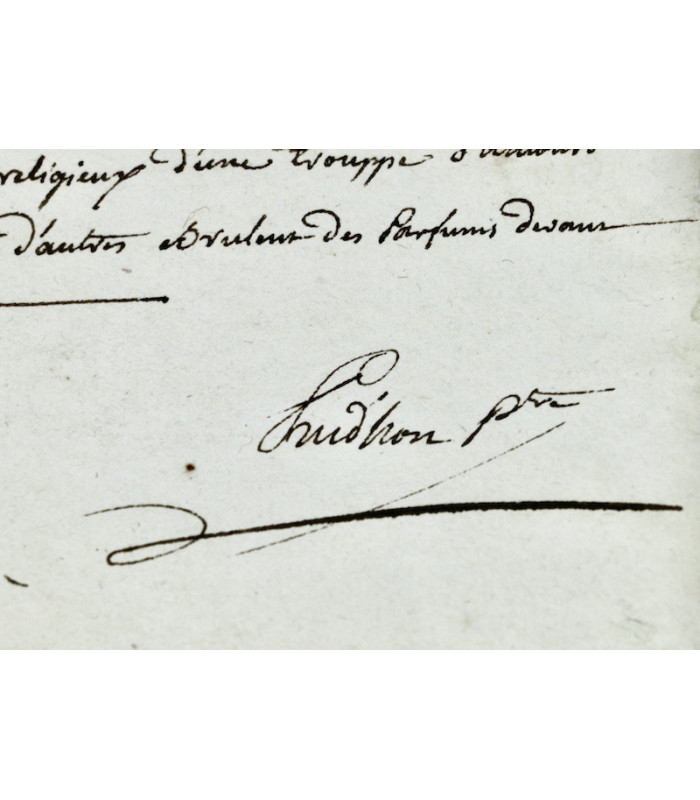 religieux d'une trouppe d'amours
d'autres Brulent des Parfums devant
Prudhon Ptre